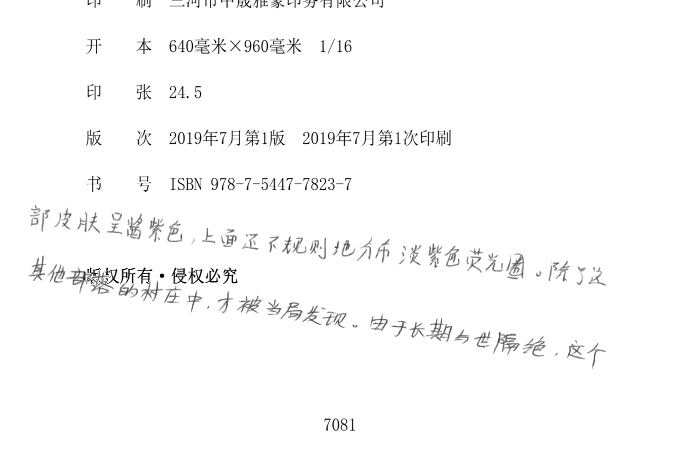 印 刷 三河市中晟雅豪印务有限公司
开 本 640毫米×960毫米 1/16
印 张 24.5
版 次 2019年7月第1版 2019年7月第1次印刷
书 号 ISBN 978-7-5447-7823-7
部皮肤呈酱紫色,上面还不规则地分布淡紫色荧光圈。除了这
版权所有·侵权必究
其他部落的村庄中,才被当局发现。由于长期与世隔绝,这个
7081